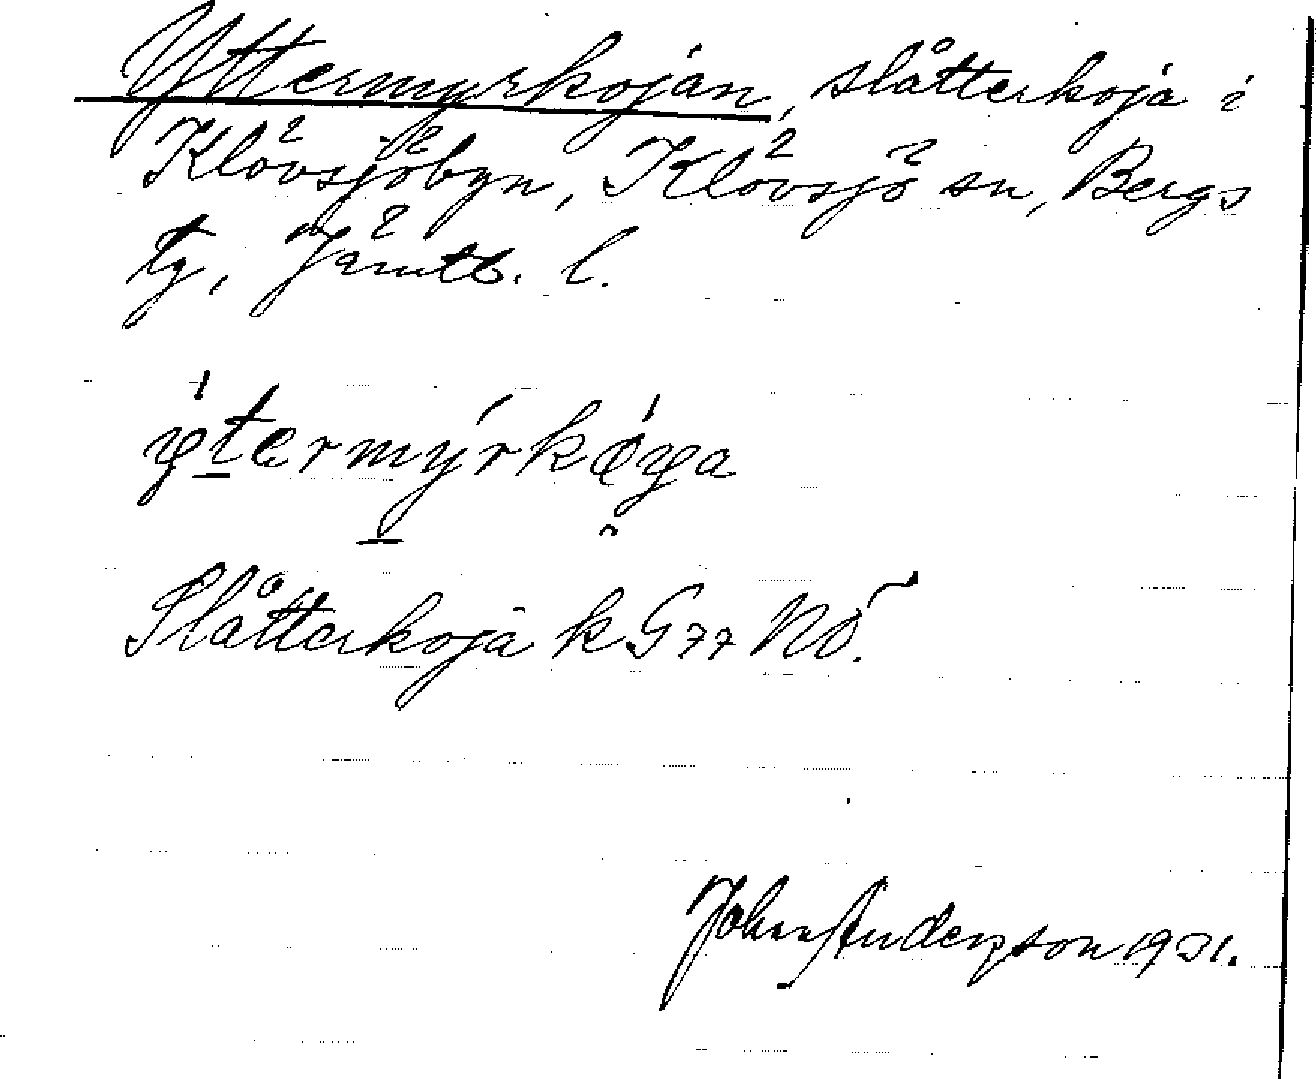 Yttermyrkojan, slåtterkoja i
Klövsjöbyn, Klövsjö sn, Bergs
tg, Jämtl. l.
ýtermýrkǿya
Slåtterkoja k G77 NÖ.
Johan Anderzson 1931.